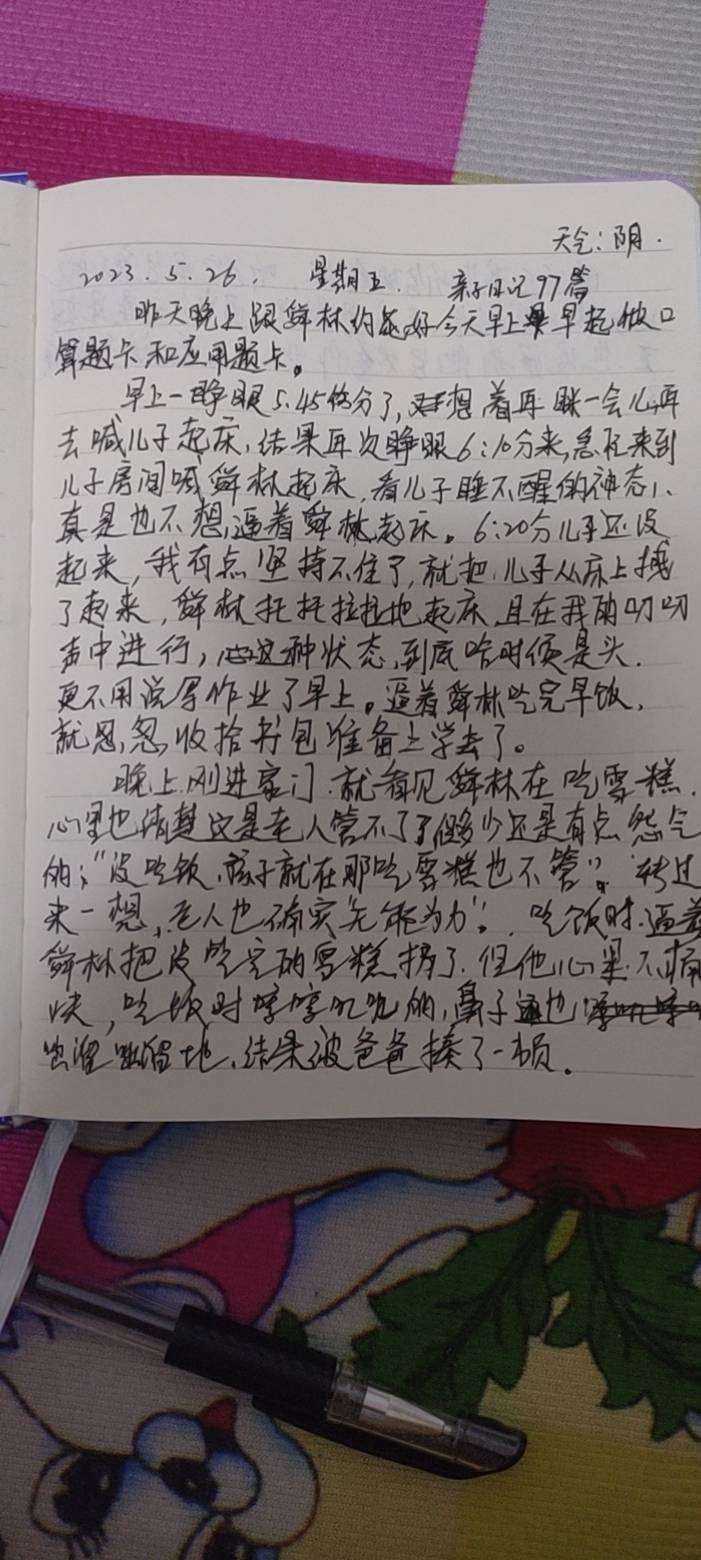 天气:阴.
2023.5.26. 星期五. 亲子日记97篇
昨天晚上跟舜林约好今天早上早起做口
算题卡和应用题卡。
早上一睁眼5.45分了,想着再眯一会儿再
去喊儿子起床,结果再次睁眼6:10分来,急忙来到
儿子房间喊舜林起床,看儿子睡不醒的神态,
真是也不想逼着舜林起床。6:20分儿子还没
起来,我有点坚持不住了,就把儿子从床上拽
了起来,舜林托托拉拉地起床,且在我的叨叨
声中进行,这种状态,到底啥时候是头.
更不用说写作业了早上。逼着舜林吃完早饭,
就忽忽收拾书包准备上学去了。
晚上刚进家门.就看见舜林在吃雪糕.
心里也清楚这是老人管不了但多少还是有点怨气
的;"没吃饭,孩子就在那吃雪糕也不管"。转过
来一想,老人也确实"无能为力"。吃饭时.逼着
舜林把没吃完的雪糕扔了.但他心里不痛
快,吃饭时哼哼叽叽的,鼻子也
地,结果被爸爸揍了一顿.